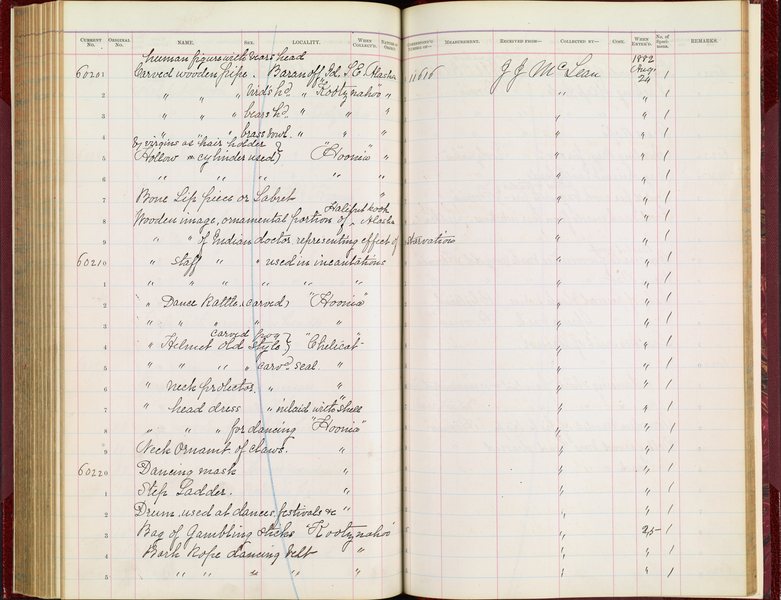 CURRENT No. ORIGINAL No. NAME. SEX. LOCALITY. WHEN COLLECT'D. MEASUREMENT. RECEIVED FROM— COLLECTED BY— COST. WHEN ENTER'D. No. of Specimens. REMARKS.
human figure with bears head 1882
60201 Carved wooden pipe. Baranoff Id. S.E. Alaska 11616 J J McLean Aug. 24 1
2 " " " bird's hd. " "Kootznahoo" " " " 1
3 " " " bears hd. " " " " " 1
4 " " " brass bowl. " " " " " 1
by virgins as "hair holder
5 Hollow cylinder used) "Hoonia" " " " 1
6 " " " " " " " " 1
7 Bone Lip piece or Labret " " " 1
Halibut hook
8 Wooden image, ornamental portion of, Alaska " " 1
9 " " of Indian doctor representing effect of starvation " " 1
60210 " Staff " " used in incantations " " 1
1 " " " " " " " " 1
2 " Dance Rattle (carved) "Hoonia" " " 1
3 " " " " " " " 1
carved frog }
4 " Helmet old style } "Chelicat" " " 1
5 " " " " carvd. seal. " " " 1
6 " Neck protector. " " " " 1
7 " head dress " inlaid with shell " " 1
8 " " " for dancing "Hoonia" " " 1
9 Neck Ornamt of claws. " " " 1
60220 Dancing mask " " " 1
1 Step Ladder. " " " 1
2 Drum, used at dances, festivals &c " " " 1
3 Bag of Gambling Sticks "Kootznahoo" " 25 1
4 Bark Rope dancing belt " " " 1
5 " " " " " " " 1